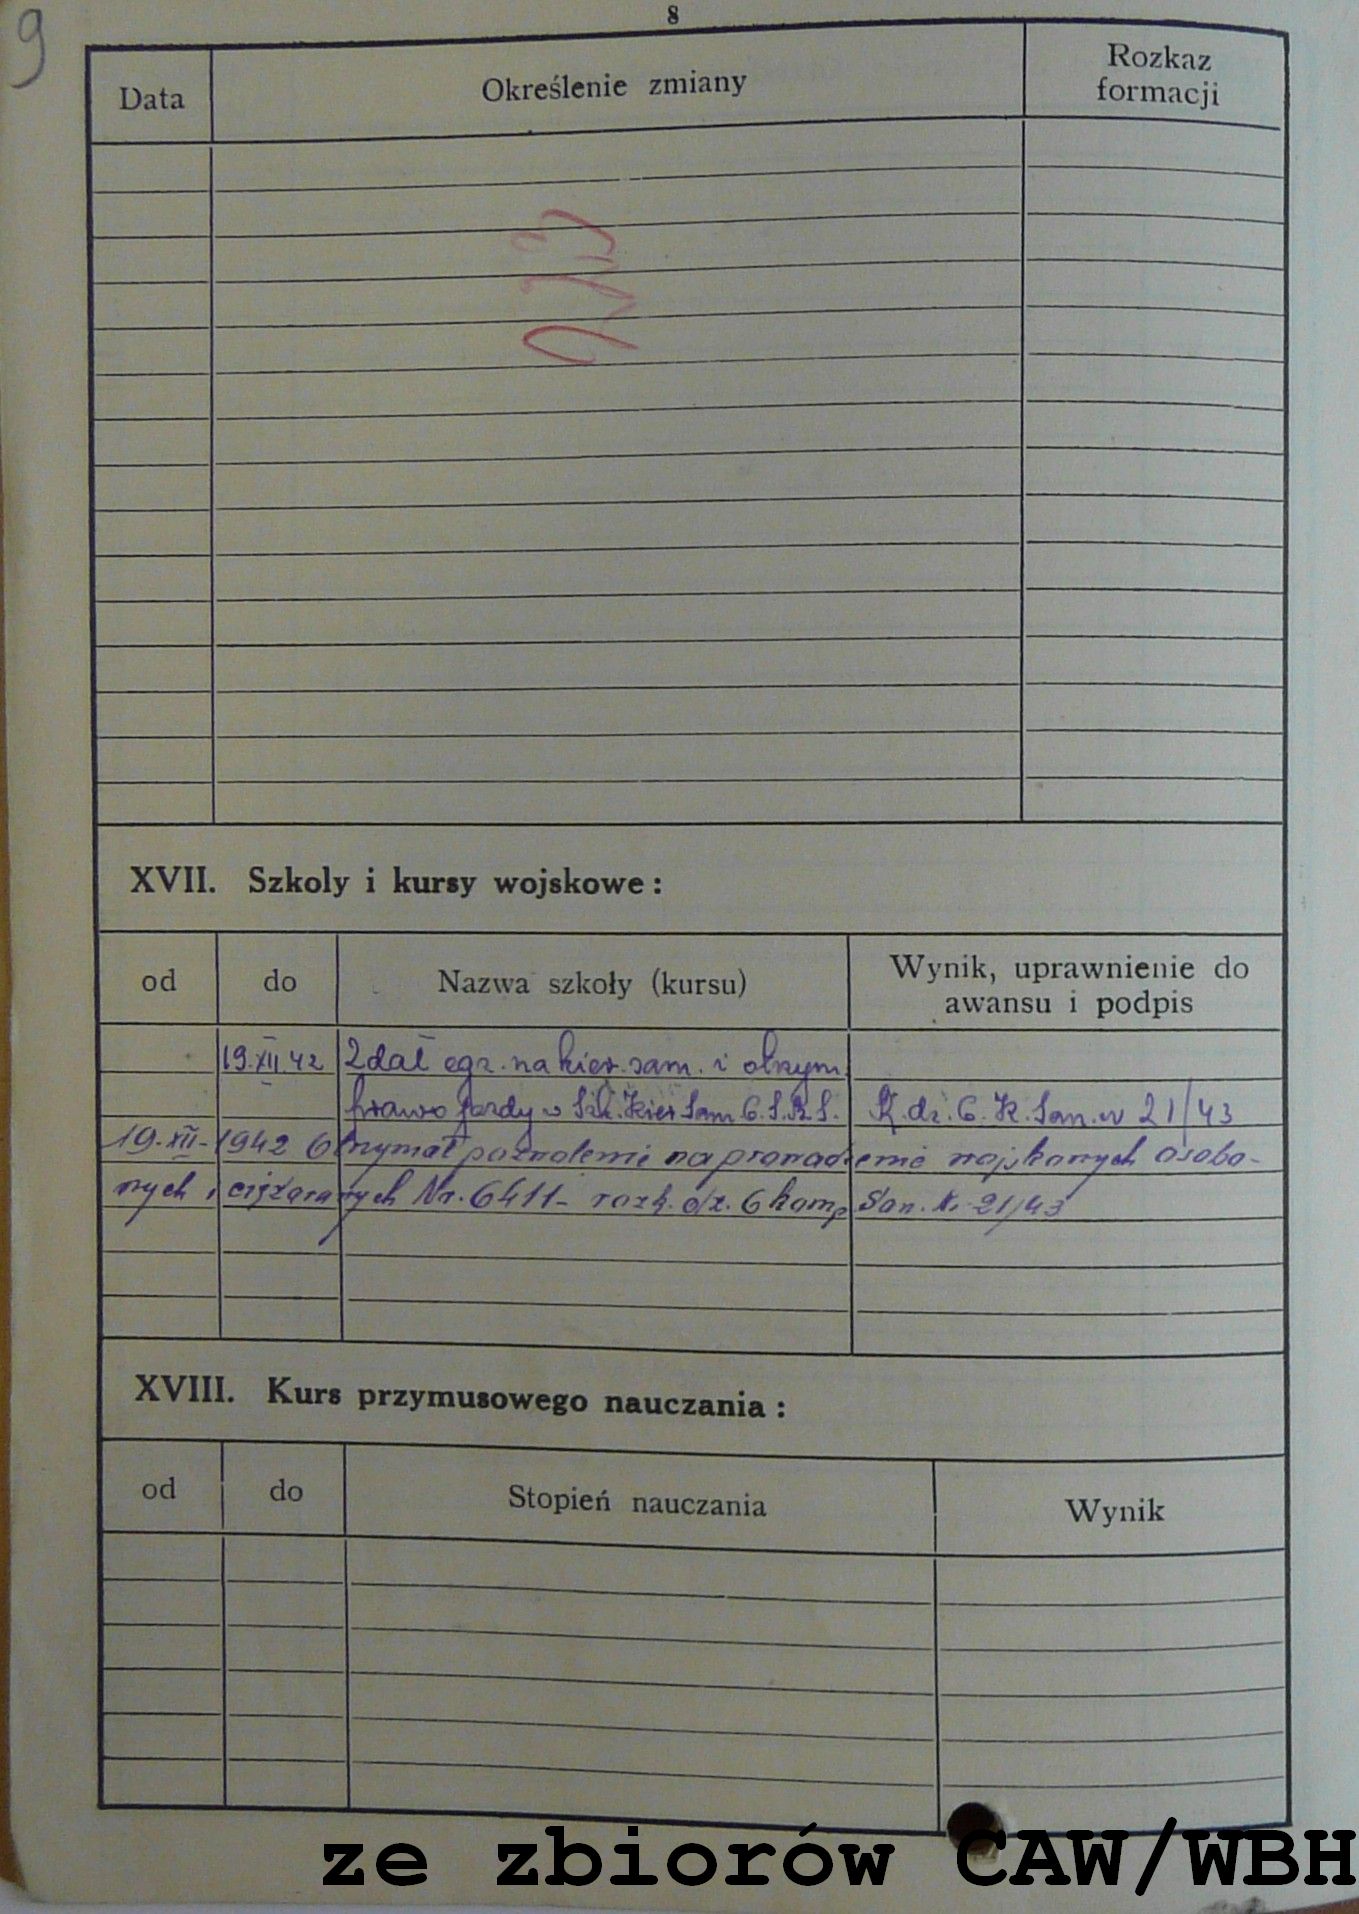 9
8
Data
Określenie zmiany
Rozkaz
formacji
XVII. Szkoly i kursy wojskowe :
od
do
Nazwa szkoły (kursu)
Wynik, uprawnienie do
awansu i podpis
19.XII 42 Zdał egz. na kier. sam. i otrzym.
prawo jazdy w Szk. Kier Sam 6. S.R.S. R. dz. 6. K. San. nr 21/43
19.XII- 1942 Otrzymał pozwolenie na prowadzenie wojskowych osobo-
wych i ciężarowych Nr. 6411- rozk. dz. 6 komp San. Nr 21/43
XVIII. Kurs przymusowego nauczania :
od
do
Stopień nauczania
Wynik
ze zbiorów CAW/WBH